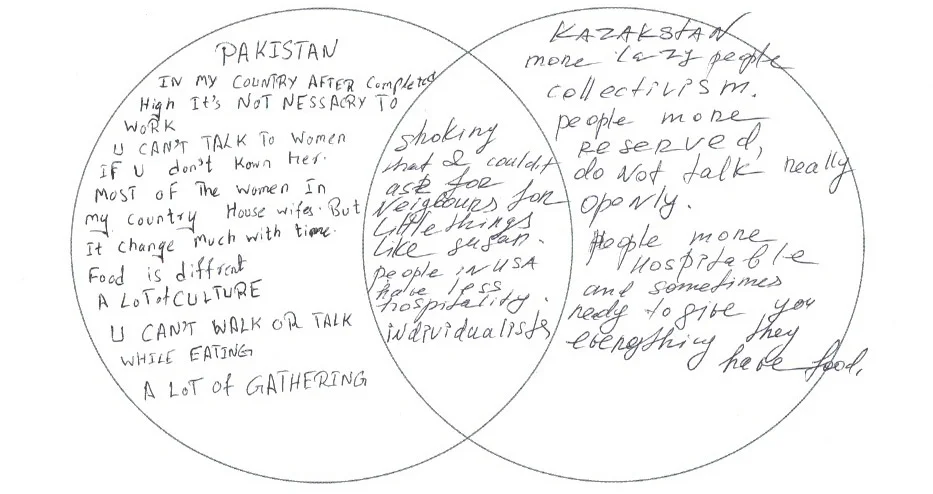 PAKISTAN
IN MY COUNTRY AFTER completed
High It's NOT NESSACRY TO
WORK
U CAN'T TALK TO WOMEN
IF U don't Kown Her.
MOST OF The WOMEN IN
my country House wifes. But
It change much with time.
Food is diffrent
A LOT of CULTURE
U CAN'T WALK OR TALK
WHILE EATING
A LOT of GATHERING
shoking
that I couldn't
ask for
Neigbours for
little things
like sugar.
people in USA
have less
hospitality.
individualists
KAZAKSTAN
more lazy people
collectivism.
people more
reserved,
do Not talk really
openly.
People more
Hospitable
and sometimes
ready to give you
everything they
have food.